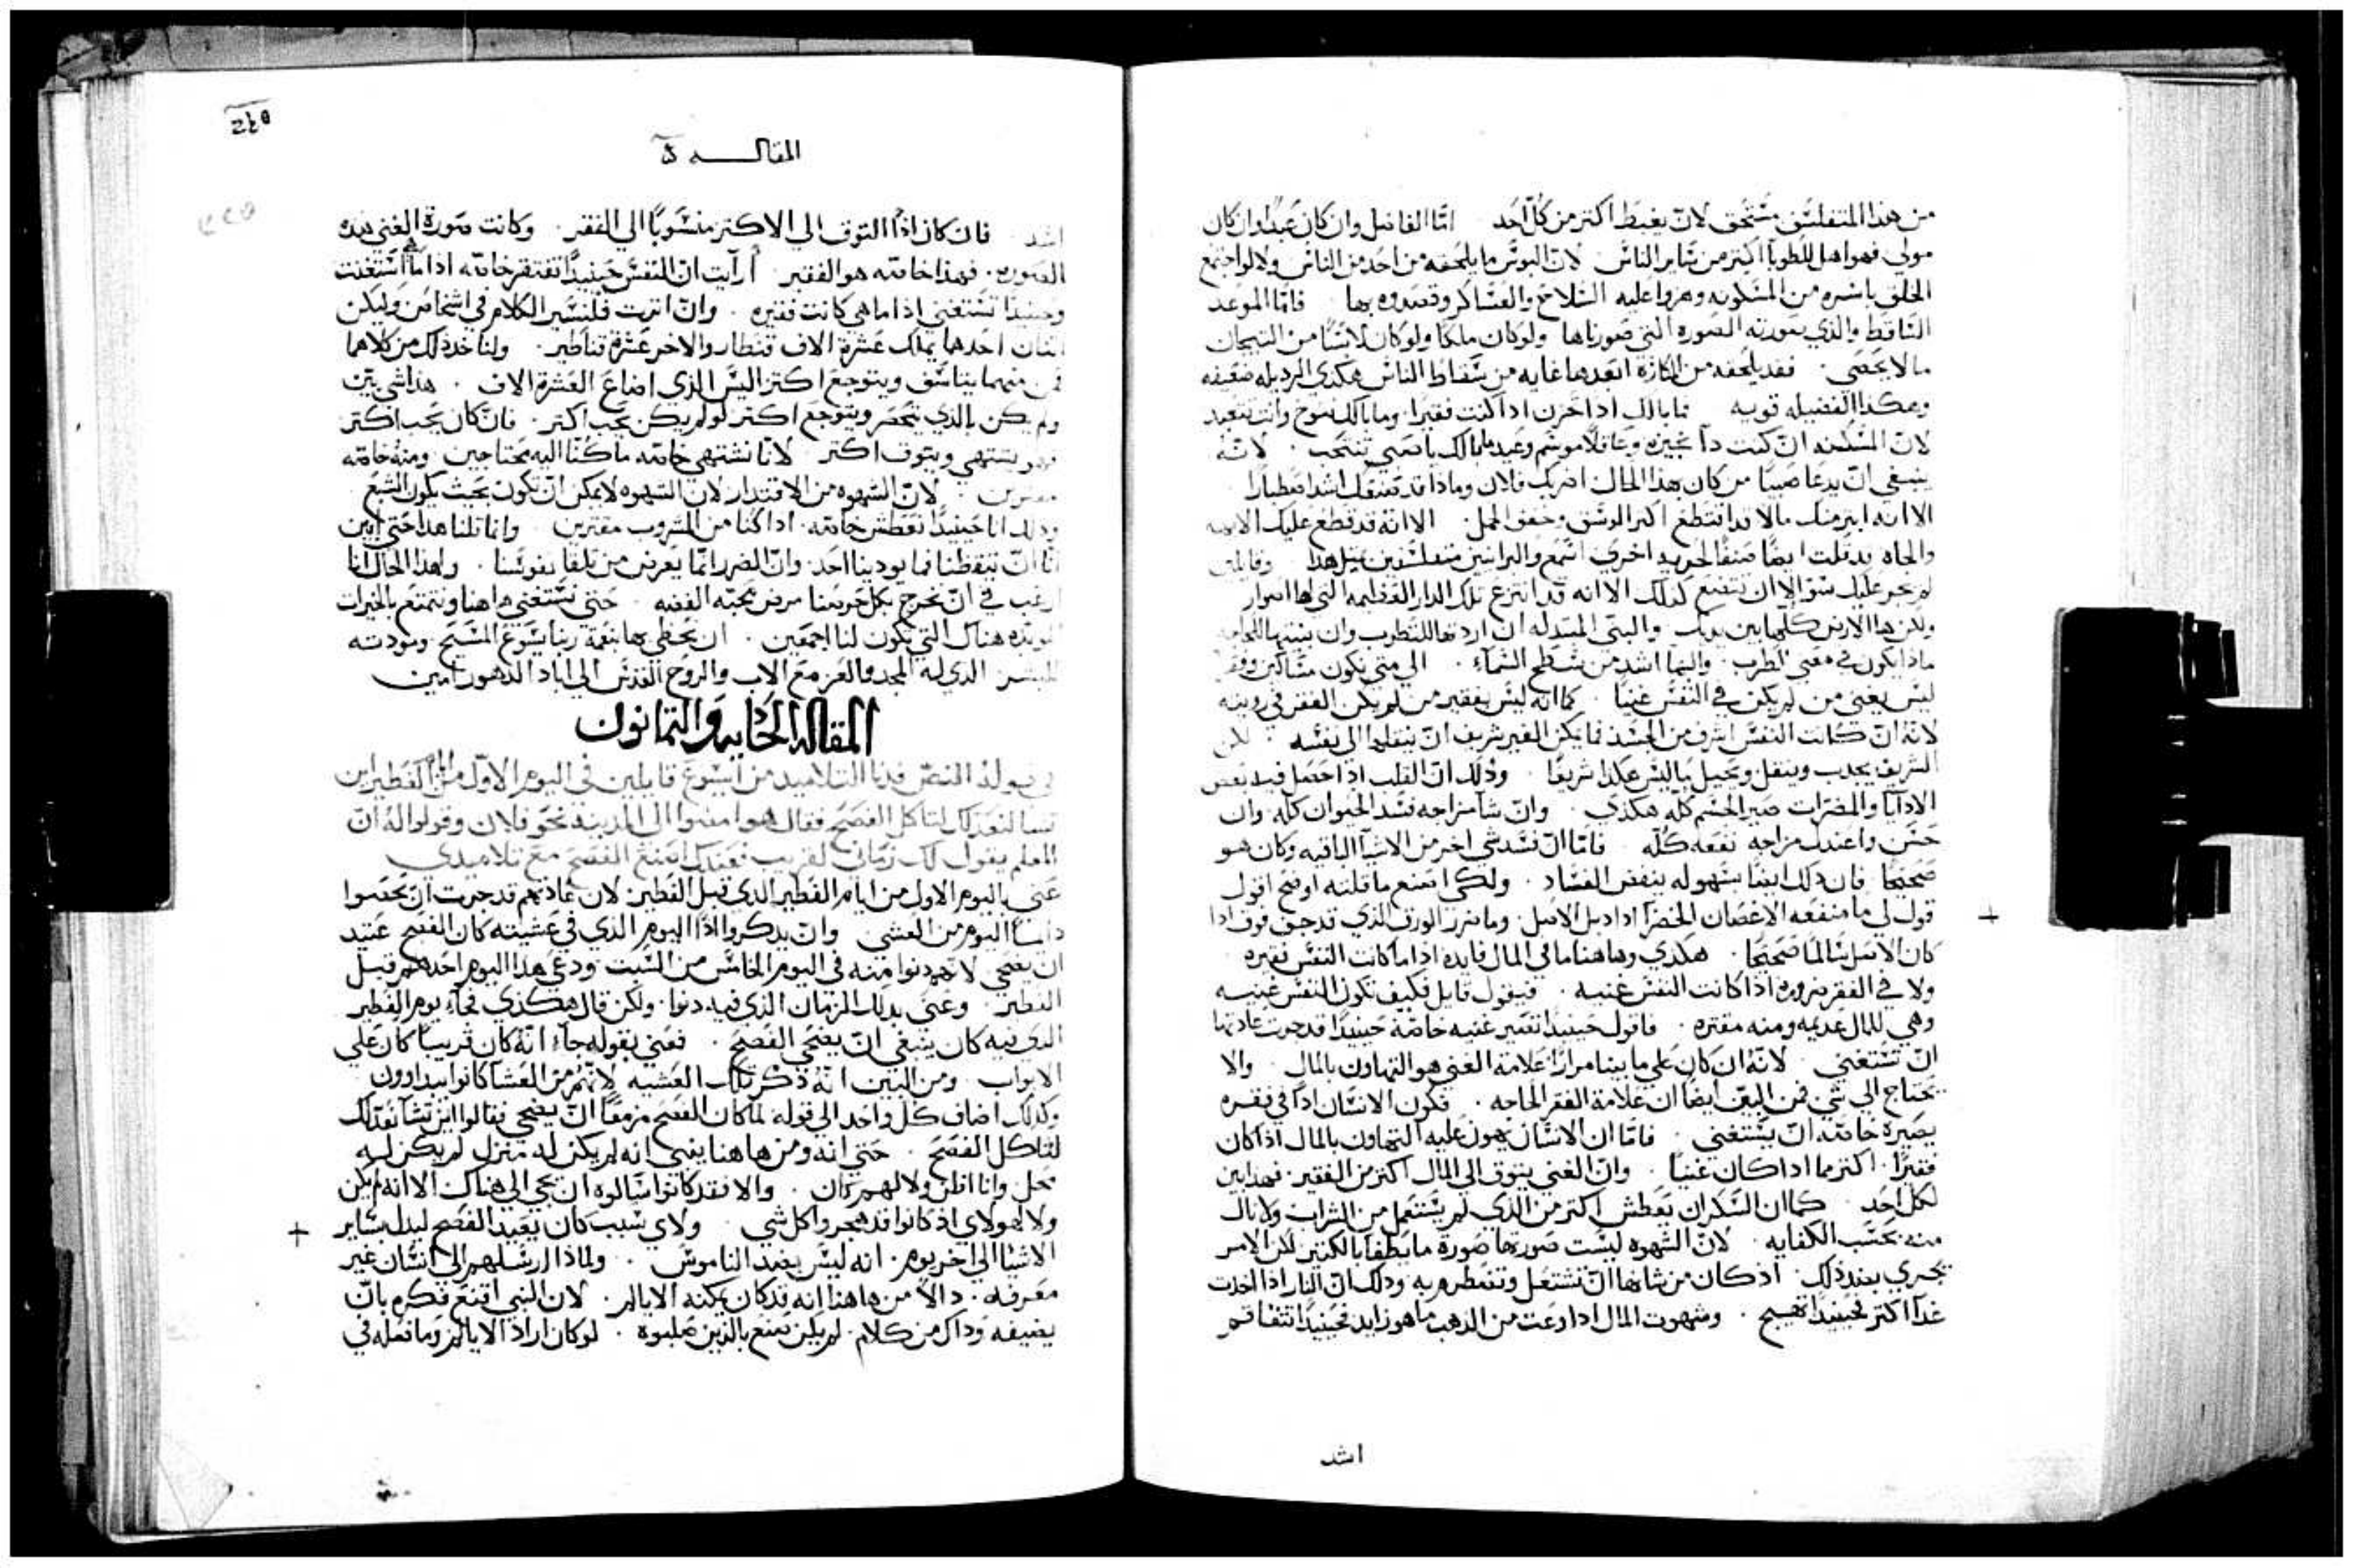 من هذا المتفلسف مستحق لان يغبط اكتر من كل احد اما الفاضل وان كان عبدا وان كان
مولي فهو اهل للطوبا اكتر من ساير الناس لان البوس ما يلحقه من احد من الناس ولا لو اجتمع
الخلق باسره من المسكونه وهزوا عليه السلاح والعساكر وقصدوه بها فاما الموعد
الساقط والذي صورته الصوره التي صورناها ولو كان ملكا ولو كان لابسا من التيجان
ما لا يحصي فقد يلحقه من المكاره ابعدها غايه من سقاط الناس هكذي الرديله ضعيفه
وهكذا الفضيله قويه فما بالك اذا تحزن اذا كنت فقيرا وما بالك تنوح وانت تعيد
ينبغي ان يدعا صبيا من كان بهذا الحال اضربك فلان وماذا قد
الا انه ابتر منك مالا قد اقتطع اكتر الوسق وخفف الحمل الا انه قد قطع عليك
ولكن هذا الارض كلها بين يديك
ماذا يكون في معني الطرب والبها اشد من سطح السماء الي متي يكون مساكين
ليس بغني من لم يكن في النفس غنيا كما انه ليس بفقير من لم يكن الفقر في
لانه ان كانت النفس اشرف من الجسد فما يمكن الغير شريف ان ينقلها الي نفسه لكن
الشريف يجدب وينقل ويحيل ما ليس هكذا شريفا وذلك ان القلب اذا حصل فيه بعض
الاداآ والمضرات صير الجسم كله هكذي وان ساء مزاجه فسد الحيوان كله وان
حسن واعتدل مزاجه نفعه كله فاما ان فسد شي اخر من الاشيآ الباقيه وكان هو
صحيحا فان ذلك ايضا بسهوله ينفض الفساد ولكي اصنع ما قلته اوضح اقول
قول لي ما منفعه الاغصان الخضرآ اذا دبل الاصل وما ضرر الورق الذي قد جف فوق اذا
كان الاصل سالما صحيحا هكذي وهاهنا ما في المال فايده اذا ما كانت النفس فقيره
ولا في الفقر ضروره اذا كانت النفس غنيه فيقول قايل فكيف تكون النفس غنيه
وهي للمال عديمه ومنه مقتره فاقول حينيدا تصير غنيه خاصة حينيدا قد جرت عادتها
ان تستغني لانه ان كان علي ما بينا مرارا علامة الغني هو التهاون بالمال والا
يحتاج الي شي فمن البين ايضا ان علامة الفقر الحاجه فكون الانسان اذا في فقره
يصيره خاصه ان يستغني فاما ان الانسان يهون عليه التهاون بالمال اذا كان
فقيرا اكتر مما اذا كان غنيا وان الغني يتوق الي المال اكتر من الفقير فهذا بين
لكل احد كما ان السكران يعطش اكتر من الذي لم يستعمل من الشراب ولا نال
منه بحسب الكفايه لان الشهوه ليست صورتها صورة ما يطفا بالكتير لكن الامر
يجري بضد ذلك اذ كان من شانها ان تشتعل وتنضطرم به وذلك ان النار اذا اخذت
غدآ اكتر فحينيدا تهيج وشهوت المال اذا وعت من الذهب ما هو زايد فحينيدا تتفاقم
اشد
المقالـــه
اشد فان كان اذا التوق الي الاكتر منسوبا الي الفقر وكانت صورة الغني هذه
الصوره فهذا خاصه هو الفقير أرآيت ان النفس حينيدا تفتقر خاصه اذا ما استغنت
وحينيدا تستغني اذا ما هي كانت فقيره وان اترت فلنسير الكلام في اشخاص وليكن
اتنان احدهما يملك عشرة الاف قنطار والاخر عشرة قناطير ولناخذ ذلك من كلاهما
فمن منهما يتاسف ويتوجع اكتر اليس الذي اضاع العشرة الاف هذا شي بين
ولم يكن بالذي يتحصر ويتوجع اكتر لو لم يكن يحب اكتر فان كان يحب اكتر
فهو يشتهي ويتوق اكتر لانا نشتهي خاصه ما كنا اليه محتاجين ومنه خاصه
مقترين لان الشهوه من الاقتدار لان الشهوه لا يمكن ان تكون بحيث يكون الشبع
وذلك انا حينيدا نعطش خاصه اذا كنا من المشروب مقترين وانما قلنا هذا حتي ابين
انا ان تيقظنا فما يودينا احد وان الضرر انما يعرض من تلقا نفوسنا ولهذا الحال انا
ارغب في ان نخرج بكل حرصنا مرض محبه الفضه حتي نستغني هاهنا ونتمتع بالخيرات
الموبده هناك التي يكون لنا اجمعين ان نحظي بها بنعمة ربنا يسوع المسيح ومودته
للبشر الذي له المجد والعز مع الاب والروح القدس الي اباد الدهور امين
المقاله الحاديه والتمانون
في قوله النص فدنا التلاميد من ايسوع قايلين في اليوم الاول من الفطير اين
تشا لنعد لك لتاكل الفصح فقال هو امضوا الي المدينه نحو فلان وقولوا له ان
المعلم يقول لك زماني لقريب فعندك اصنع الفصح مع تلاميدي
عني باليوم الاول من ايام الفطير الذي قبل الفطير لان عادتهم قد جرت ان يحصوا
دايما اليوم من العشي وان يدكروا اذا اليوم الذي في عشيته كان الفصح عتيد
ان يضحي لانهم دنوا منه في اليوم الخامس من السبت ودعي هذا اليوم احدهم قبل
الفطير وعني بدلك الزمان الذي فيه دنوا ولكن قال هكذي فجآء يوم الفطير
الذي فيه كان ينبغي ان يضحي الفصح فعني بقوله جآء انه كان قريبا كان علي
الابواب ومن البين انه ذكر تلك العشيه لانهم من العشا كانوا يبداوون
وكذلك اضاف كل واحد الي قوله لما كان الفصح مزمعا ان يضحي فقالوا اين تشآ نعد لك
لتاكل الفصح حتي انه ومن هاهنا يتبين انه لم يكن له منزل لم يكن له
محل وانا اظن ولا لهم كان والا فقد كانوا سالوه ان يجي الي هناك الا انه لم يكن
ولا لهولاي اذ كانوا قد هجروا كل شي ولاي سبب كان يعيد الفصح ليدل بساير
الاشيا الي اخر يوم انه ليس بضد الناموس ولماذا ارسلهم الي انسان غير
معرفه دالا من هاهنا انه قد كان يمكنه الا يالم لان الذي اقنع فكره بان
يضيفه وذاك من كلام لم يكن صنع بالذين صلبوه لو كان اراد الا يالم وما فعله في